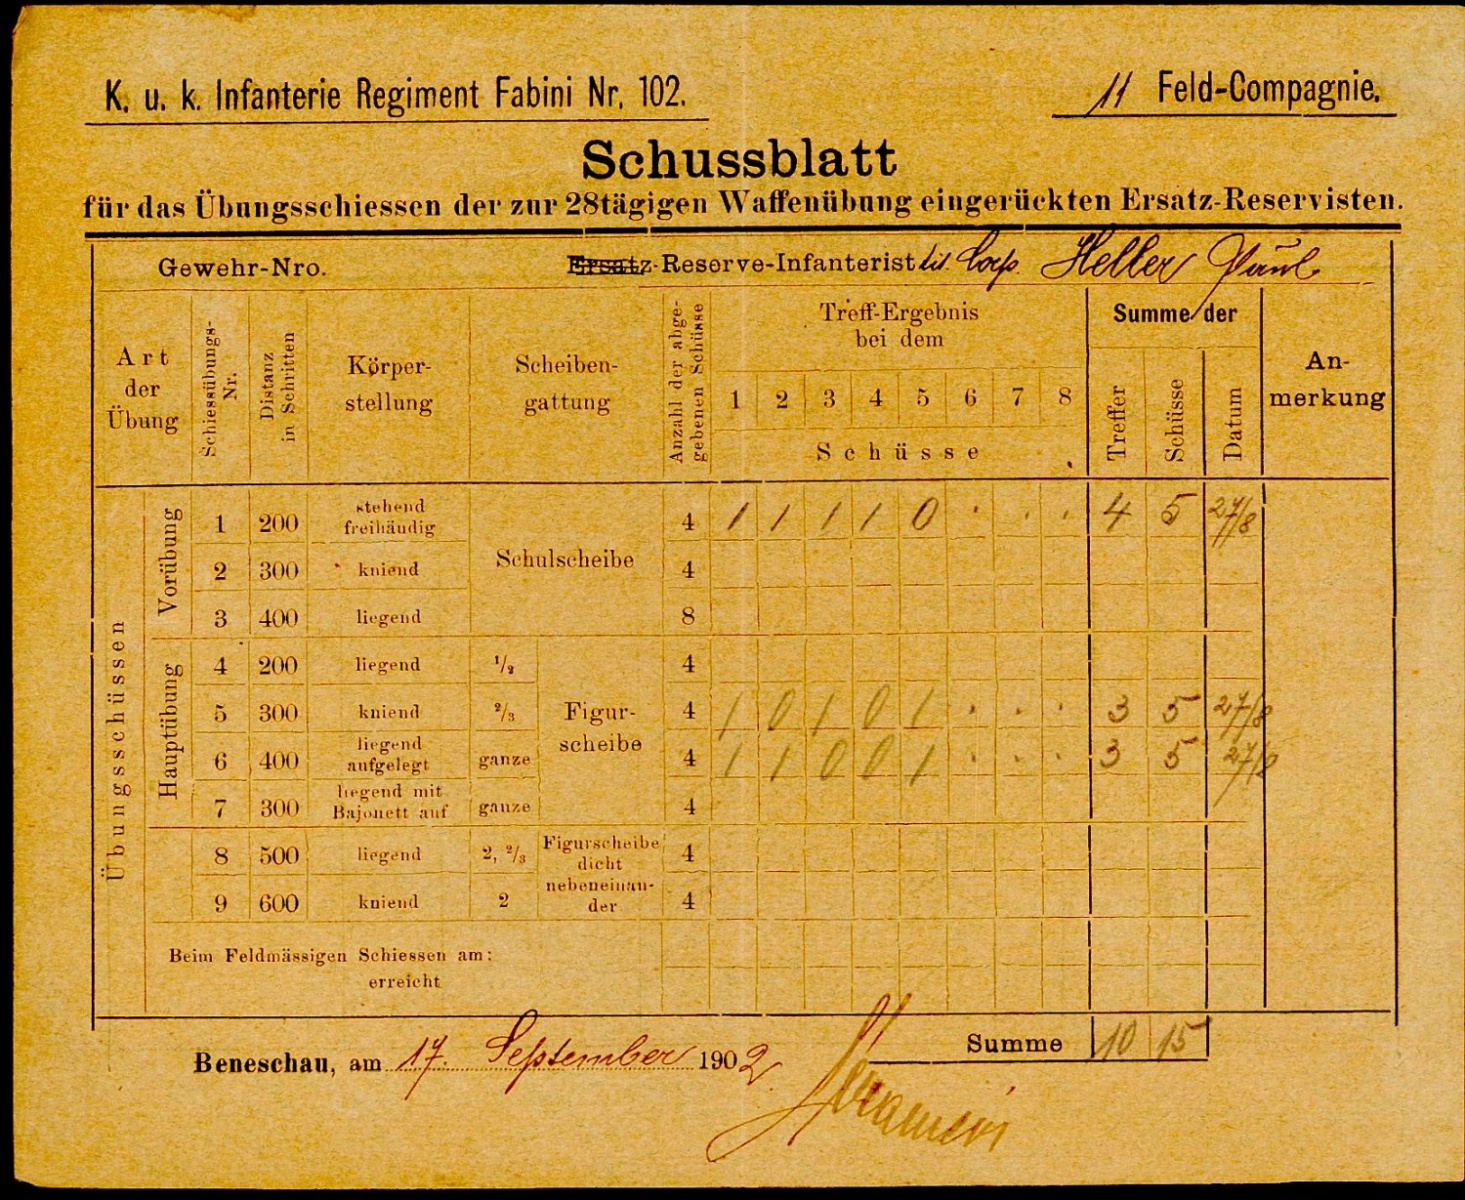 K. u. k. Infanterie Regiment Fabini Nr. 102.
11 Feld-Compagnie.
Schussblatt
für das Übungsschiessen der zur 28tägigen Waffenübung eingerückten Ersatz-Reservisten.
Gewehr-Nro.
Ersatz-Reserve-Infanterist tit. Corp. Heller Paul
Art der Übung
Schiessübungs-Nr.
Distanz in Schritten
Körper-stellung
Scheiben-gattung
Anzahl der abge-gebenen Schüsse
Treff-Ergebnis
bei dem
1 2 3 4 5 6 7 8
Schüsse
Summe der
Treffer Schüsse Datum
An-merkung
Übungsschüssen
Vorübung
1 200 stehend freihändig Schulscheibe 4 1 1 1 1 0 · · · 4 5 27/8
2 300 kniend 4
3 400 liegend 8
Hauptübung
4 200 liegend 1/2 Figur-scheibe 4
5 300 kniend 2/3 4 1 0 1 0 1 · · · 3 5 27/8
6 400 liegend aufgelegt ganze 4 1 1 0 0 1 · · · 3 5 27/8
7 300 liegend mit Bajonett auf ganze 4
8 500 liegend 2, 2/3 Figurscheibe dicht nebeneinan-der 4
9 600 kniend 2 4
Beim Feldmässigen Schiessen am:
erreicht
Summe 10 15
Beneschau, am 17. September 1902